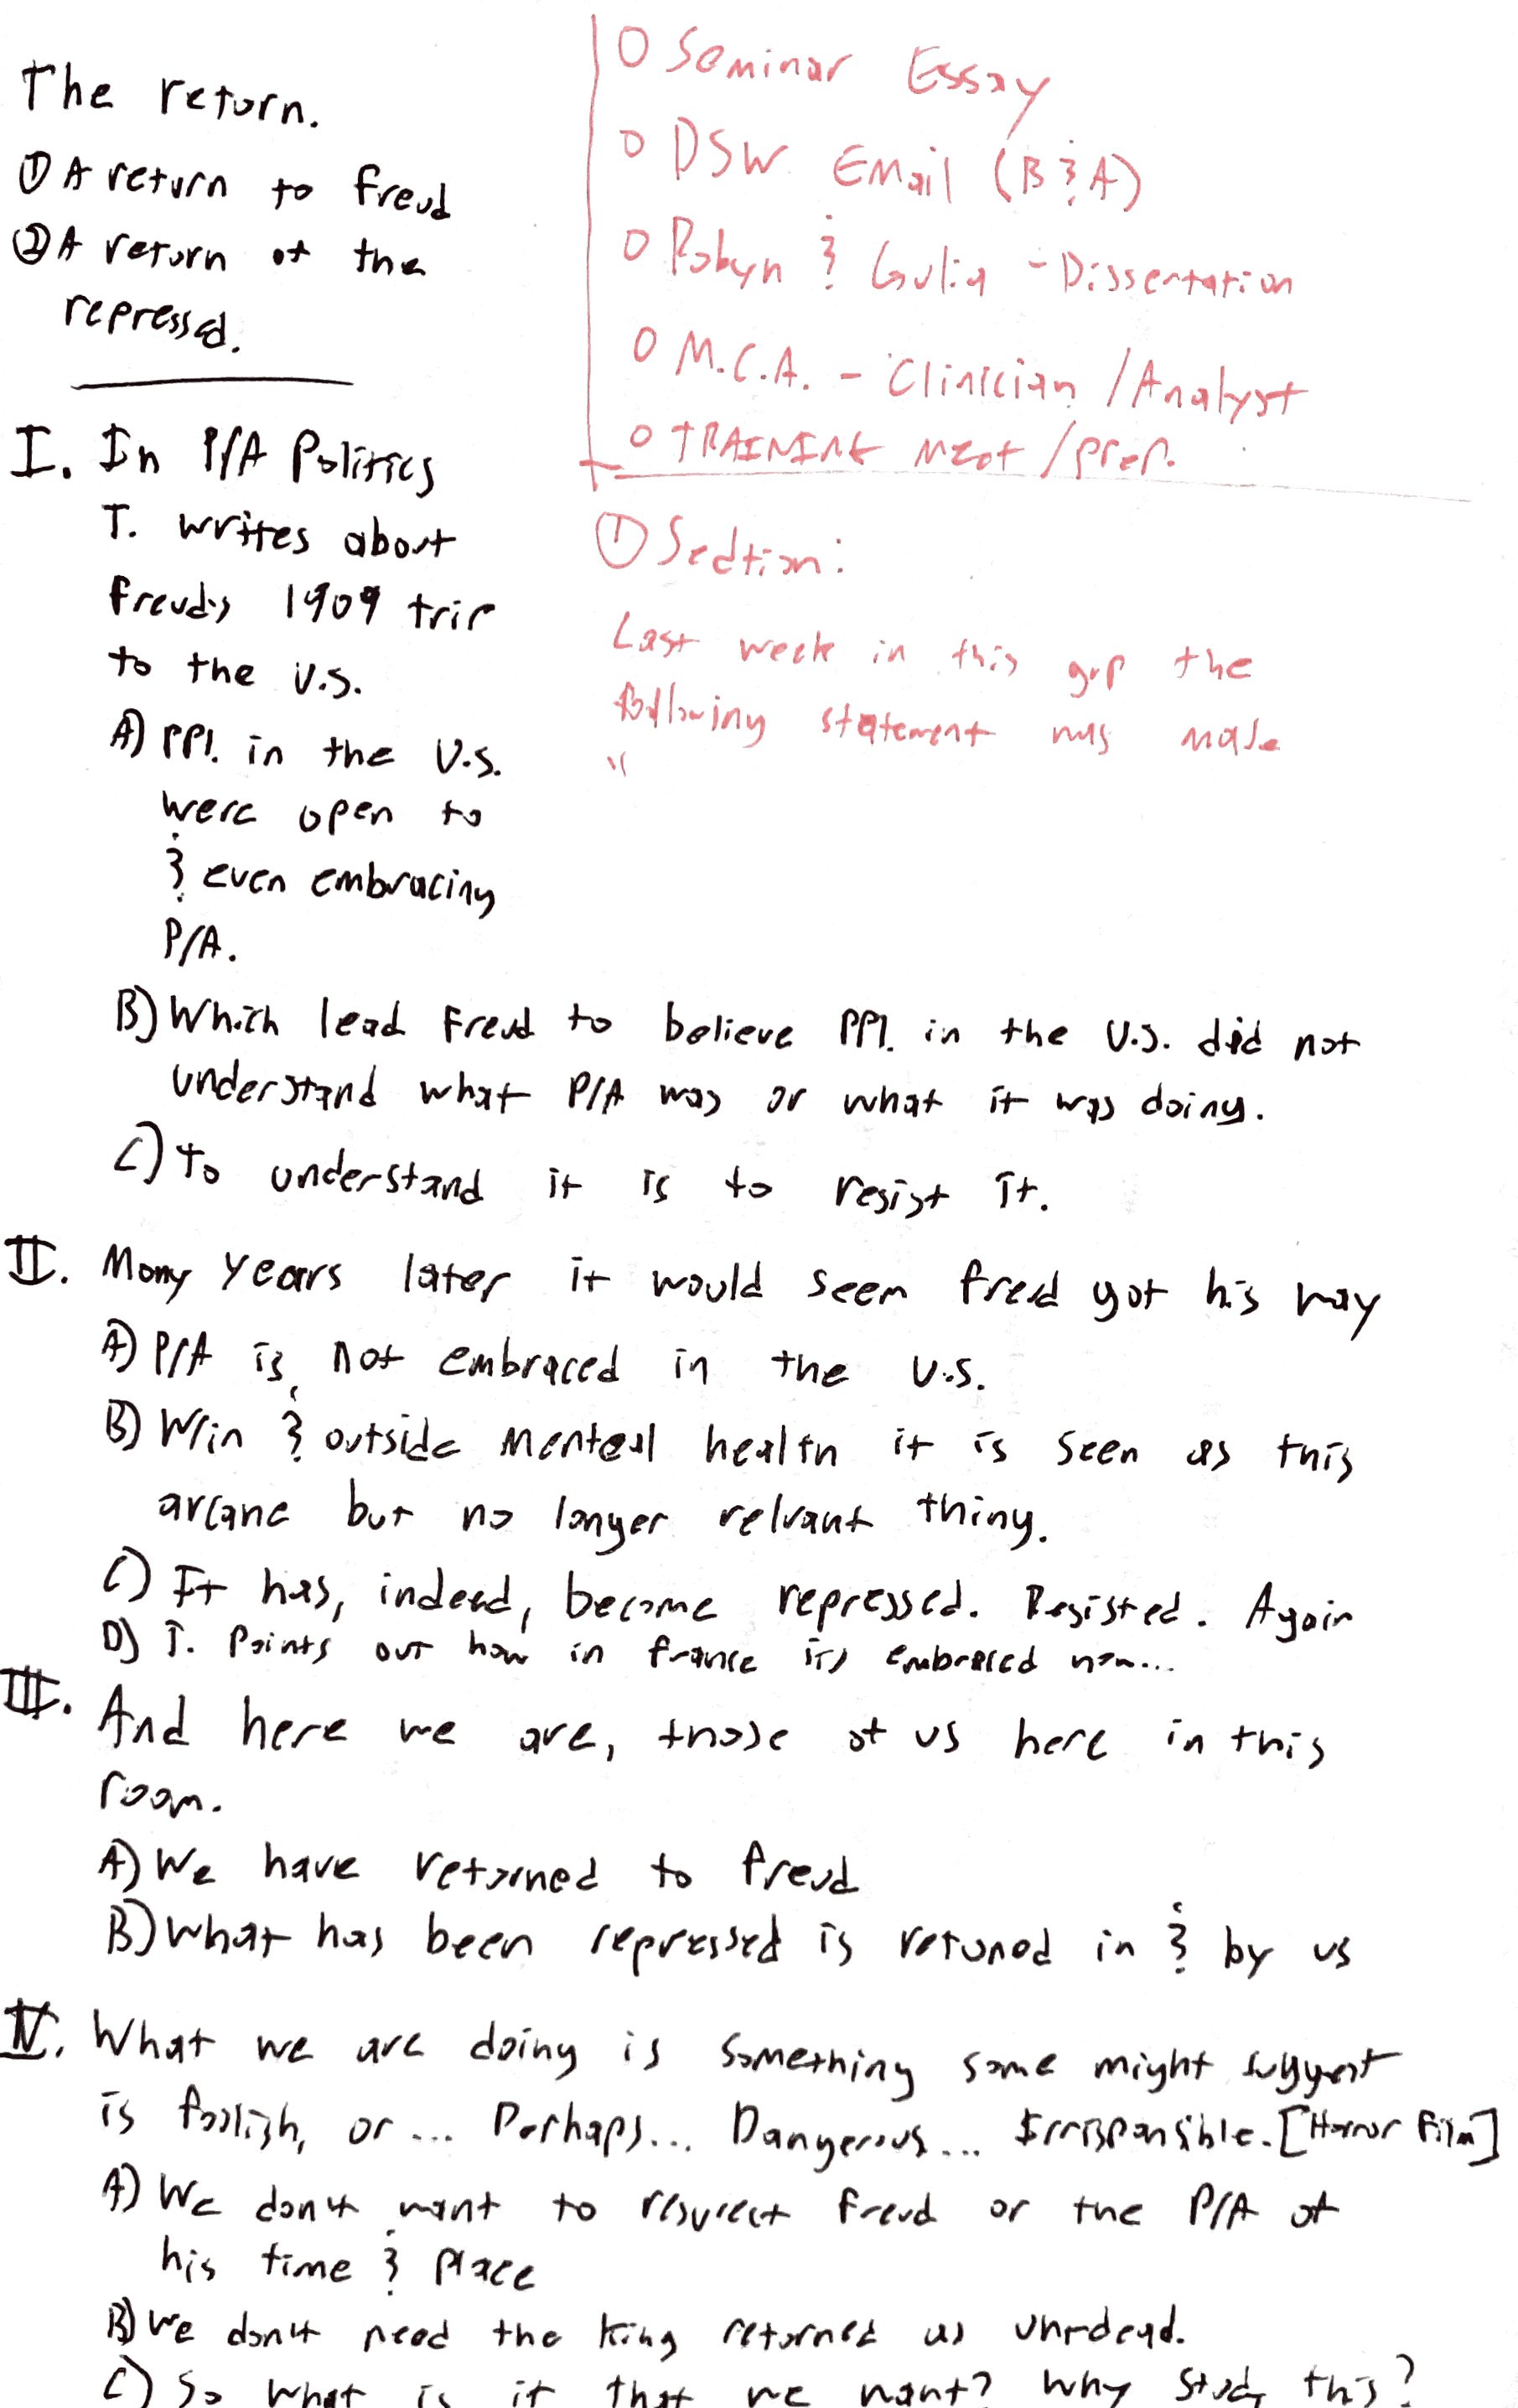 The return.
① A return to Freud
② A return of the
repressed.
I. In P/A Politics
T. writes about
Freud's 1909 trip
to the U.S.
A) PPl. in the U.S.
were open to
& even embracing
P/A.
B) Which lead Freud to believe PPl. in the U.S. did not
understand what P/A was or what it was doing.
C) To understand it is to resist it.
II. Many years later it would seem Freud got his way
A) P/A is not embraced in the U.S.
B) W/in & outside mental health it is seen as this
arcane but no longer relvant thing.
C) It has, indeed, become repressed. Resisted. Again
D) T. Points out how in France its embraced now...
III. And here we are, those of us here in this
room.
A) We have returned to Freud
B) What has been repressed is retuned in & by us
IV. What we are doing is something some might suggest
is foolish, or... Perhaps... Dangerous... Irrisponsible. [Horror Film]
A) We don't want to resurect Freud or the P/A of
his time & place
B) We don't need the King returned as un-dead.
C) So what is it that we want? Why study this?
O Seminar Essay
O DSW Email (B & A)
O Robyn & Gulia - Dissertation
O M.C.A. - Clinician / Analyst
O TRAINING meet / prep.
① Section:
Last week in this grp the
following statement was made
"